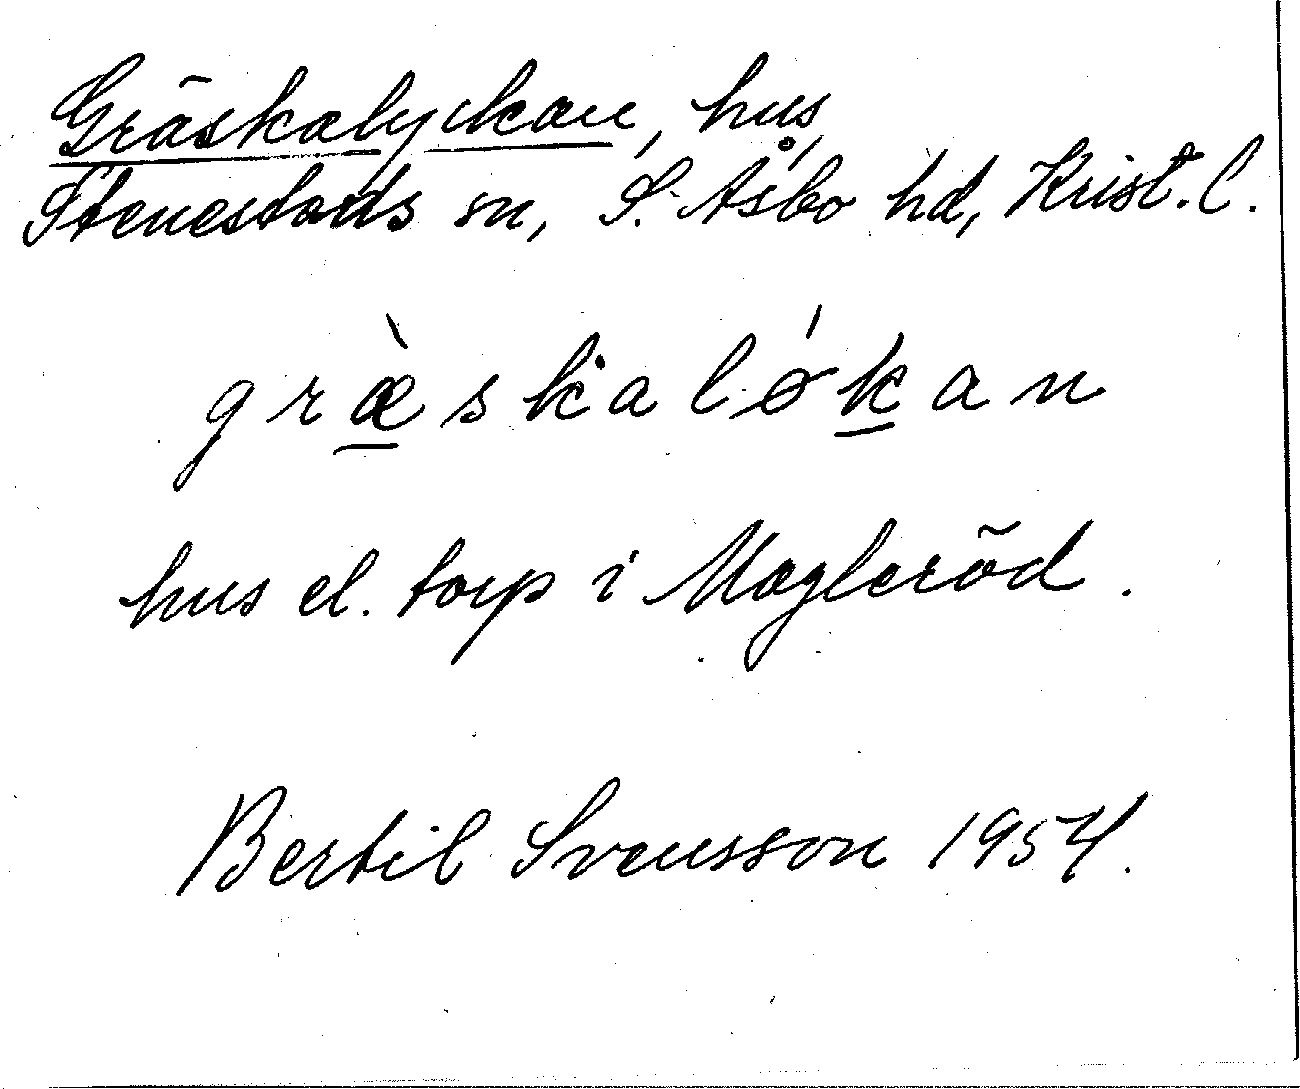 Gräskalyckan, hus,
Stenestads sn, S. Åsbo hd, Krist. l.
græ̀skaløkan
hus el. torp i Magleröd.
Bertil Svensson 1954.